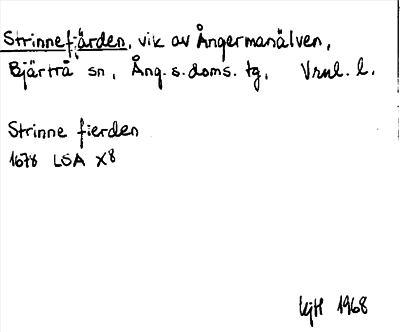 Strinnefjärden, vik av Ångermanälven,
Bjärtrå sn, Ång. s. doms. tg, Vrnl. l.
Strinne fierden
1678 LSA X8
1968